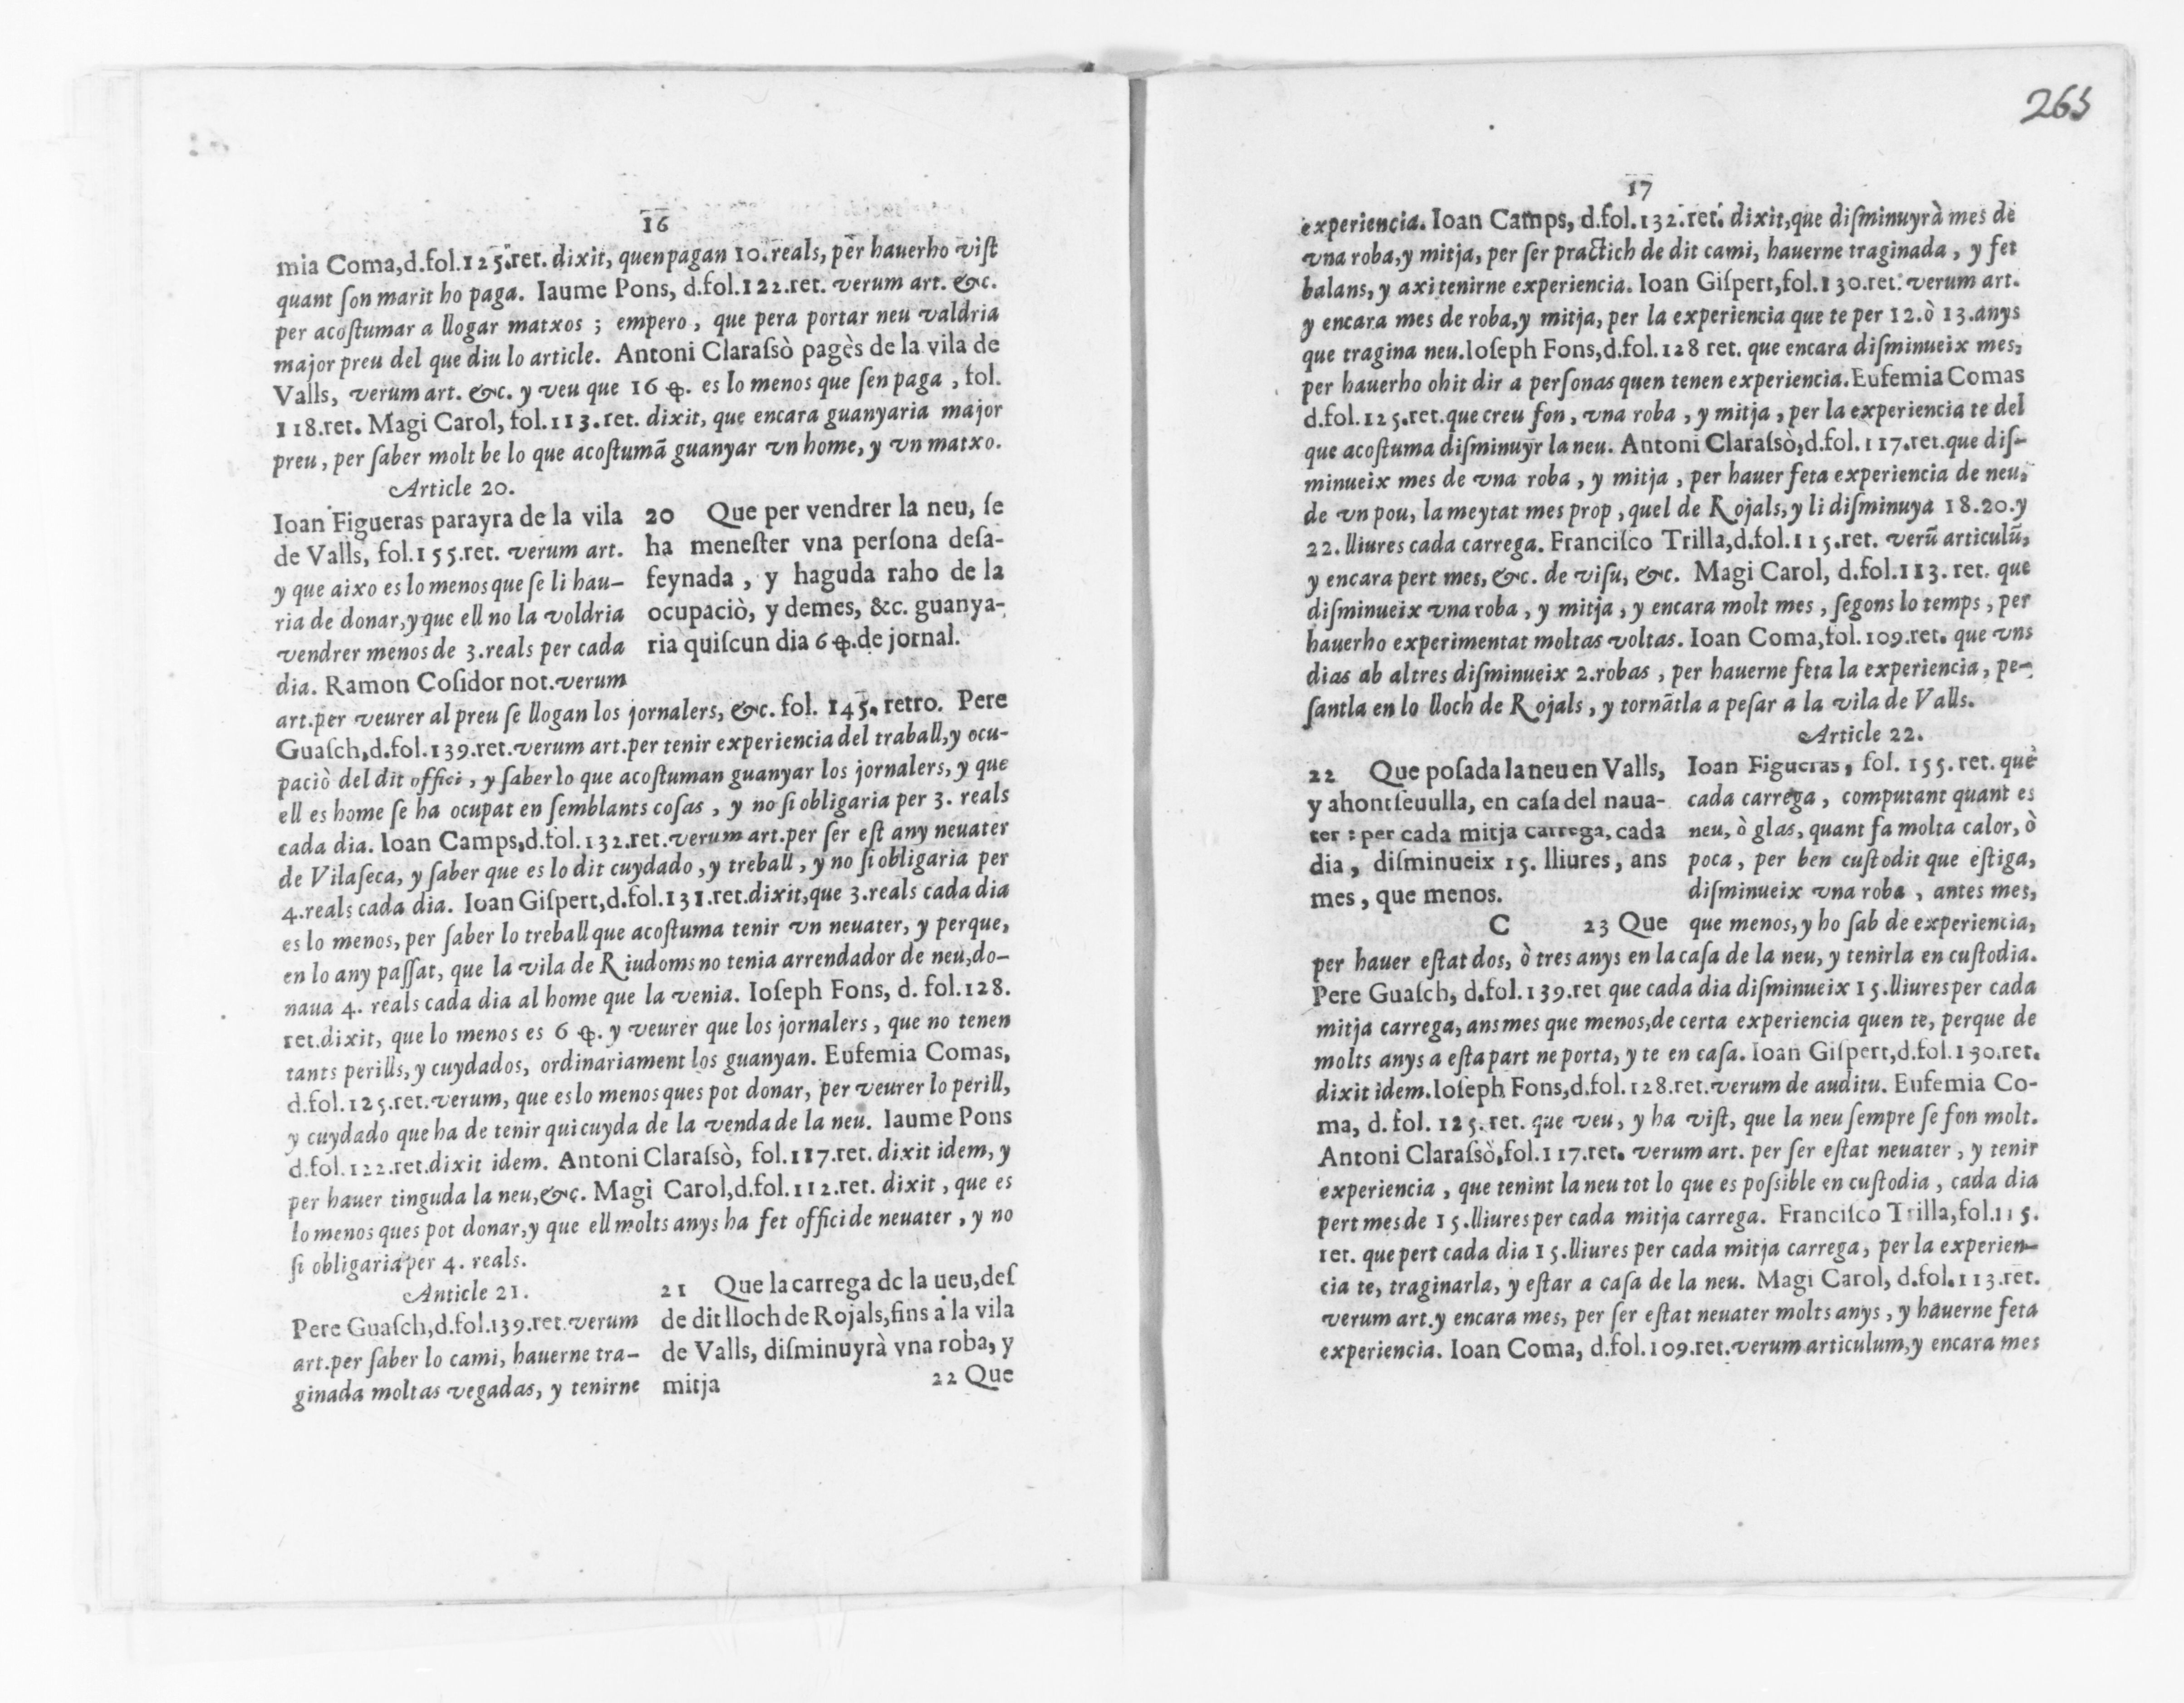 16
mia Coma,d.fol.125.ret. dixit, quen pagan 10.reals, per hauerho vist
quant ſon marit ho paga. Iaume Pons, d.fol.122.ret. verum art. &c.
per acoſtumar a llogar matxos ; empero, que pera portar neu valdria
major preu del que diu lo article. Antoni Claraſsò pagès de la vila de
Valls, verum art. &c. y veu que 16 ꝸ. es lo menos que ſen paga, fol.
118.ret. Magi Carol, fol.113.ret. dixit, que encara guanyaria major
preu, per ſaber molt be lo que acoſtumã guanyar vn home, y vn matxo.
Article 20.
Ioan Figueras parayra de la vila
de Valls, fol.155.ret. verum art.
y que aixo es lo menos que ſe li hau-
ria de donar,y que ell no la voldria
vendrer menos de 3.reals per cada
dia. Ramon Coſidor not.verum
20 Que per vendrer la neu, ſe
ha meneſter vna perſona deſa-
feynada, y haguda raho de la
ocupaciò, y demes, &c. guanya-
ria quiſcun dia 6 ꝸ.de jornal.
art.per veurer al preu ſe llogan los jornalers, &c. fol. 145. retro. Pere
Guaſch,d.fol.139.ret.verum art.per tenir experiencia del traball,y ocu-
paciò del dit offici, y ſaber lo que acoſtuman guanyar los jornalers, y que
ell es home ſe ha ocupat en ſemblants coſas, y no ſi obligaria per 3. reals
cada dia. Ioan Camps,d.fol.132.ret.verum art.per ſer eſt any neuater
de Vilaſeca, y ſaber que es lo dit cuydado, y treball, y no ſi obligaria per
4.reals cada dia. Ioan Giſpert,d.fol.131.ret.dixit,que 3.reals cada dia
es lo menos, per ſaber lo treball que acoſtuma tenir vn neuater, y perque,
en lo any paſſat, que la vila de Riudoms no tenia arrendador de neu,do-
naua 4. reals cada dia al home que la venia. Ioſeph Fons, d. fol.128.
ret.dixit, que lo menos es 6 ꝸ. y veurer que los jornalers, que no tenen
tants perills, y cuydados, ordinariament los guanyan. Eufemia Comas,
d.fol.125.ret.verum, que es lo menos ques pot donar, per veurer lo perill,
y cuydado que ha de tenir qui cuyda de la venda de la neu. Iaume Pons
d.fol.122.ret.dixit idem. Antoni Claraſsò, fol.117.ret. dixit idem, y
per hauer tinguda la neu,&c. Magi Carol,d.fol.112.ret. dixit, que es
lo menos ques pot donar,y que ell molts anys ha fet offici de neuater, y no
ſi obligaria per 4. reals.
Anticle 21.
Pere Guaſch,d.fol.139.ret.verum
art.per ſaber lo cami, hauerne tra-
ginada moltas vegadas, y tenirne
21 Que la carrega de la ueu,deſ
de dit lloch de Rojals,fins a la vila
de Valls, diſminuyrà vna roba, y
mitja
22 Que
263
17
experiencia. Ioan Camps, d.fol.132.ret. dixit,que diſminuyrà mes de
vna roba,y mitja, per ſer practich de dit cami, hauerne traginada, y fet
balans, y axi tenirne experiencia. Ioan Giſpert,fol.130.ret. verum art.
y encara mes de roba,y mitja, per la experiencia que te per 12.ò 13.anys
que tragina neu.Ioſeph Fons,d.fol.128 ret. que encara diſminueix mes,
per hauerho ohit dir a perſonas quen tenen experiencia.Eufemia Comas
d.fol.125.ret.que creu fon, vna roba, y mitja, per la experiencia te del
que acoſtuma diſminuyr la neu. Antoni Claraſsò,d.fol.117.ret.que diſ-
minueix mes de vna roba, y mitja, per hauer feta experiencia de neu,
de vn pou, la meytat mes prop, quel de Rojals, y li diſminuya 18.20.y
22. lliures cada carrega. Franciſco Trilla,d.fol.115.ret. verũ articulũ,
y encara pert mes, &c. de viſu, &c. Magi Carol, d.fol.113. ret. que
diſminueix vna roba, y mitja, y encara molt mes, ſegons lo temps, per
hauerho experimentat moltas voltas. Ioan Coma,fol.109.ret. que vns
dias ab altres diſminueix 2.robas, per hauerne feta la experiencia, pe-
ſantla en lo lloch de Rojals, y tornãtla a peſar a la vila de Valls.
Article 22.
22 Que poſada la neu en Valls,
y ahont ſeuulla, en caſa del naua-
ter : per cada mitja carrega, cada
dia, diſminueix 15. lliures, ans
mes, que menos.
C 23 Que
Ioan Figueras, fol. 155. ret. que
cada carrega, computant quant es
neu, ò glas, quant fa molta calor, ò
poca, per ben cuſtodit que eſtiga,
diſminueix vna roba, antes mes,
que menos, y ho ſab de experiencia,
per hauer eſtat dos, ò tres anys en la caſa de la neu, y tenirla en cuſtodia.
Pere Guaſch, d.fol.139.ret que cada dia diſminueix 15.lliures per cada
mitja carrega, ans mes que menos,de certa experiencia quen te, perque de
molts anys a eſta part ne porta, y te en caſa. Ioan Giſpert,d.fol.130.ret.
dixit idem.Ioſeph Fons,d.fol.128.ret.verum de auditu. Eufemia Co-
ma, d. fol. 125. ret. que veu, y ha viſt, que la neu ſempre ſe fon molt.
Antoni Claraſsò,fol.117.ret. verum art. per ſer eſtat neuater, y tenir
experiencia, que tenint la neu tot lo que es poſsible en cuſtodia, cada dia
pert mes de 15.lliures per cada mitja carrega. Franciſco Trilla,fol.115.
ret. que pert cada dia 15.lliures per cada mitja carrega, per la experien-
cia te, traginarla, y eſtar a caſa de la neu. Magi Carol, d.fol.113.ret.
verum art.y encara mes, per ſer eſtat neuater molts anys, y hauerne feta
experiencia. Ioan Coma, d.fol.109.ret.verum articulum,y encara mes